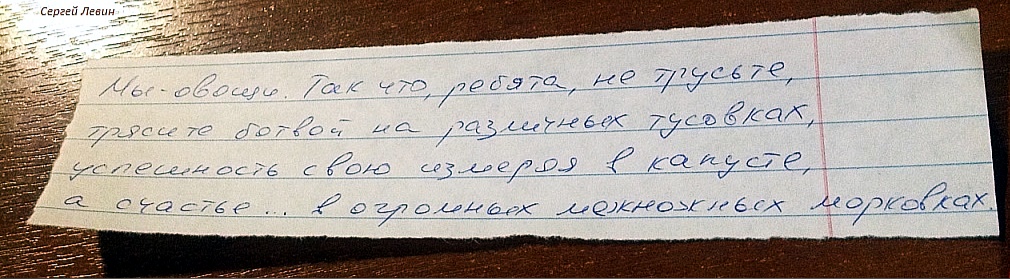 Сергей Левин
Мы-овощи. Так что, ребята, не трусьте,
трясите ботвой на различных тусовках,
успешность свою измеряя в капусте,
а счастье... в огромных межножных морковках.